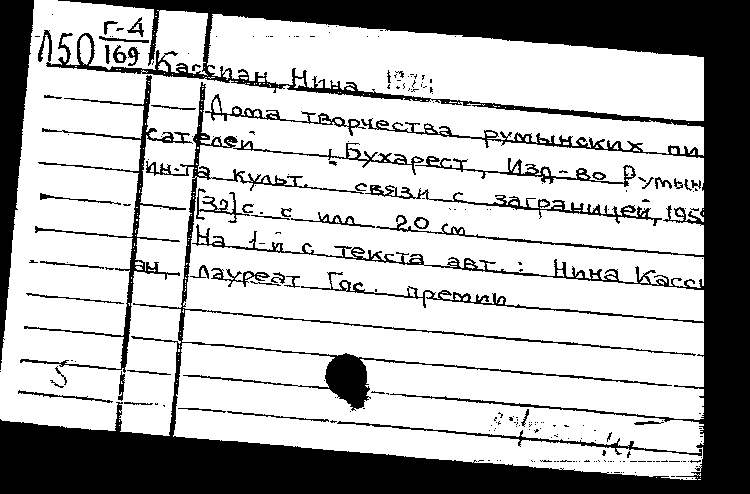 Г-4
150 169
Касспан, Нина. 1924
Дома творчества румынских пи
сателей. Бухарест, Изд-во Румын
ин-та культ. связи с заграницей, 195
[32] с. с илл 20 см.
На 1-й с текста авт.: Нина Касс
ан, лауреат Гос. премии.
5